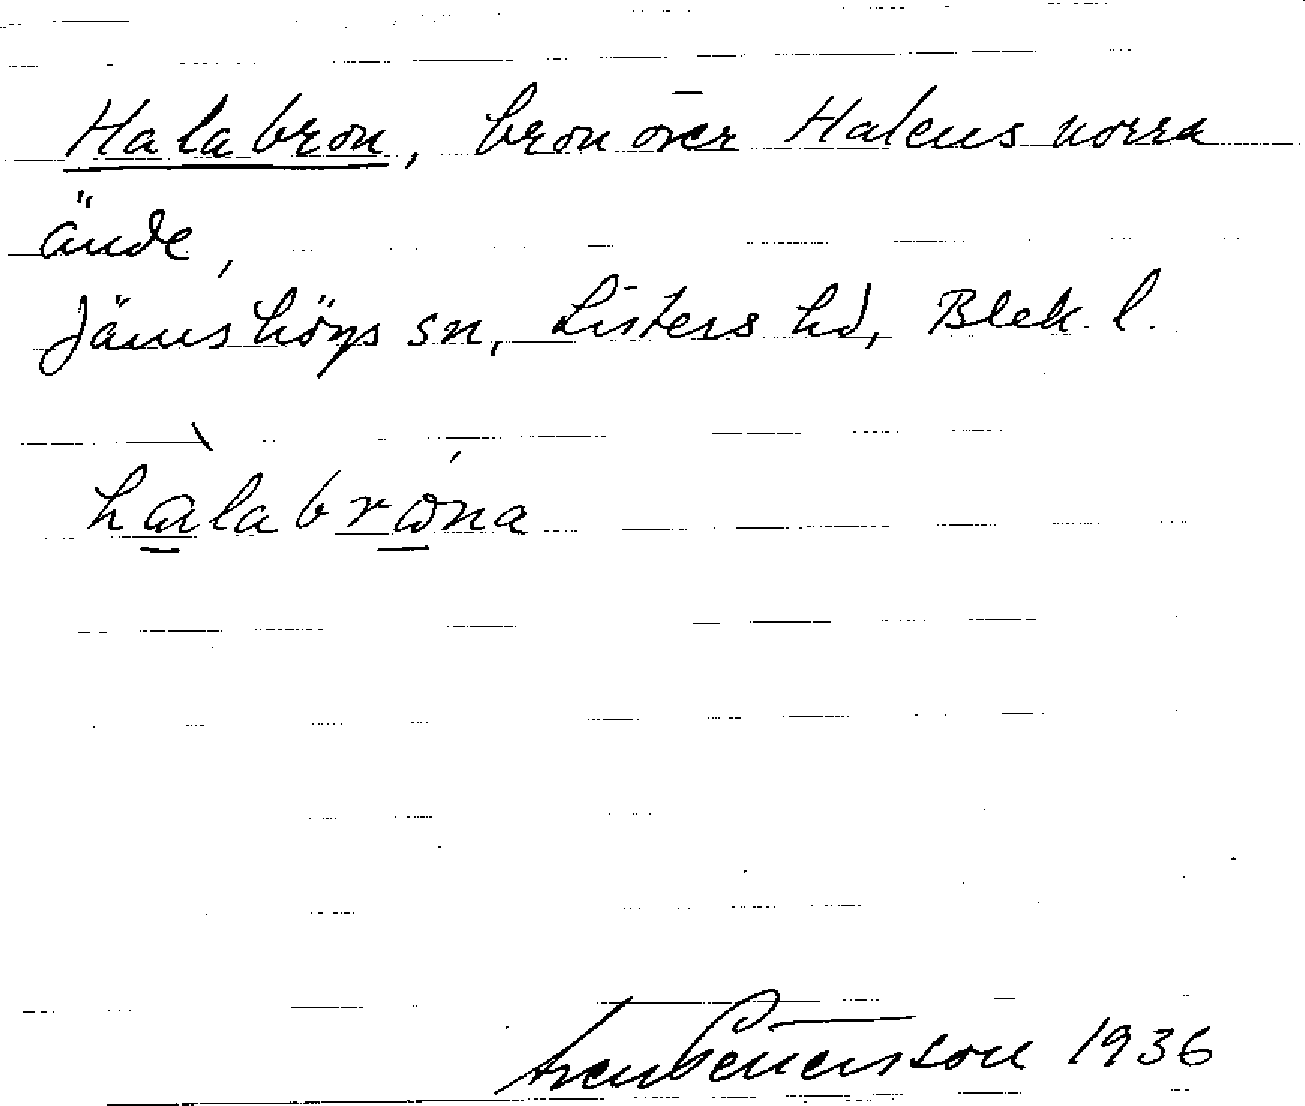 Halabron, bron över Halens norra
ände,
Jämshögs sn, Listers hd, Blek. l.
hàlabróna
1936